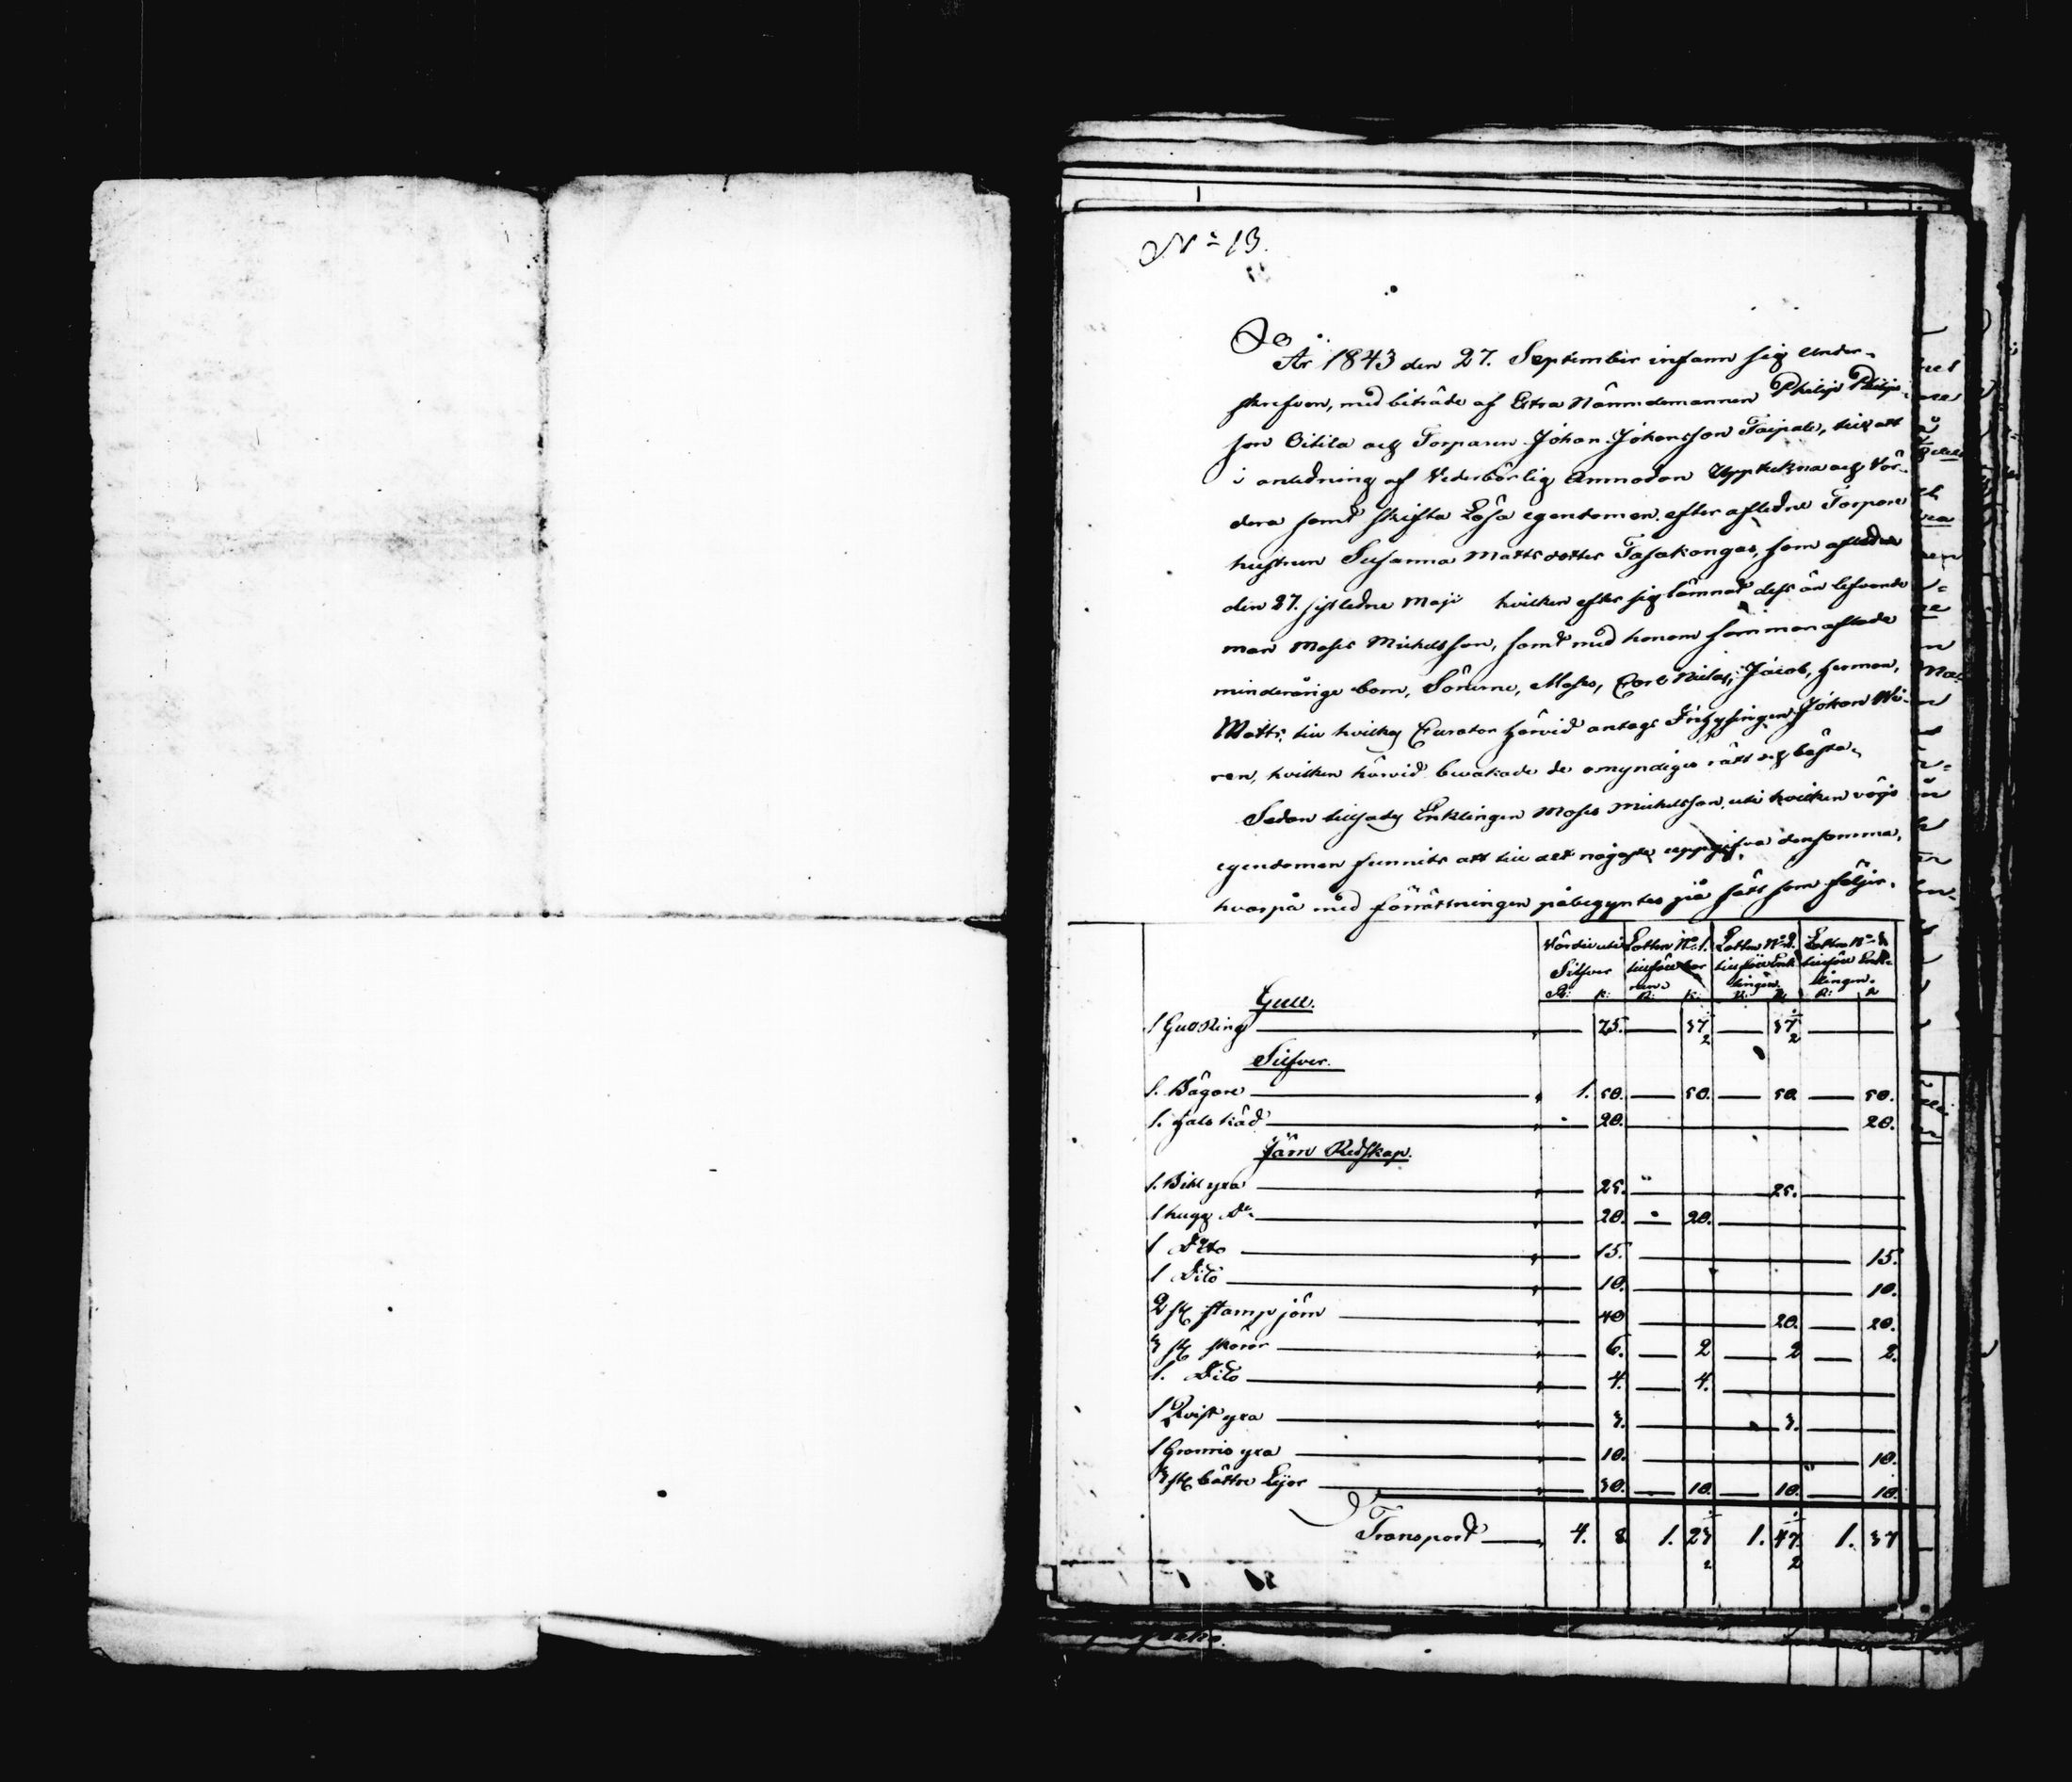 No 13.
År 1843 den 27. September infann sig Under-
skrefven, med biträde af Extra Nämndemannen Philip Philips-
son Oitila och Torparen Johan Johansson Taipale, till att
i anledning af Vederbörlig Anmodan Upptekna och Vär-
dera samt skifta Lösa egendomen efter afledne Torpare
hustrun Susanna Mattsdotter Tasakangas, som afledne
den 27. sistledne Maji hvilken efter sig lämnat dess än lefvande
man Moses Mickelsson, samt med honom samman aflade
minderårige barn, Sönerne, Moses, Carl Niclas, Jacob, Herman,
Matts, till hvilkas Curator härvid antags Johan
ren, hvilken härvid bevakade de omyndiges rätt och bästa.
Sedan tillsades Enklingen Moses Mickelsson, uti hvilken vågo
egendomen funnits att till alt nogaste uppgifva densamma,
hvarpå med förrättningen påbegyntes på sätt som följer.
Värde uti Silfver Lotten No 1. tillföll bar nen. Lotten No 2. tillföll Enk lingen. Lotten No 3 tillföll Enk- lingen.
R: K: R: K: R: K: R: K
Gull.
1 Gull Ring 75. 37 1/2 37 1/2
Silfver.
1. Bägare 1. 50. 50. 50. 50.
1. Halskäd 20. 20.
Järn Redskap.
1. Bihl yxa 25. 25.
1 hugg Do 20. 20.
1 Dito 15. 15.
1 Dito 10. 10.
2 st stamp järn 40 20. 20.
3 st skäror 6. 2 2 2.
1. Dito 4. 4.
1 Qvist yxa 3. 3.
1 yxa 10. 10.
3 st bättre Lijor 30. 10. 10. 10.
Transport 4. 8 1. 23 1/2 1. 47 1/2 1. 37